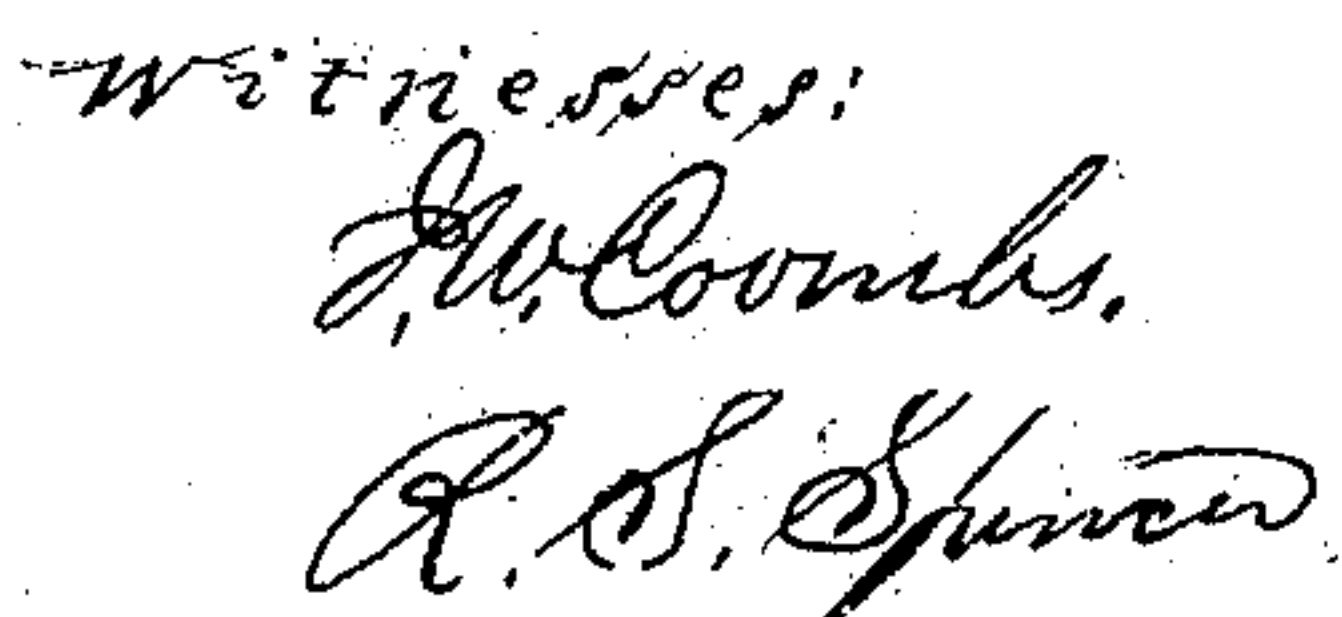 Witnesses:
J.W. Coombs.
R. S. Spencer